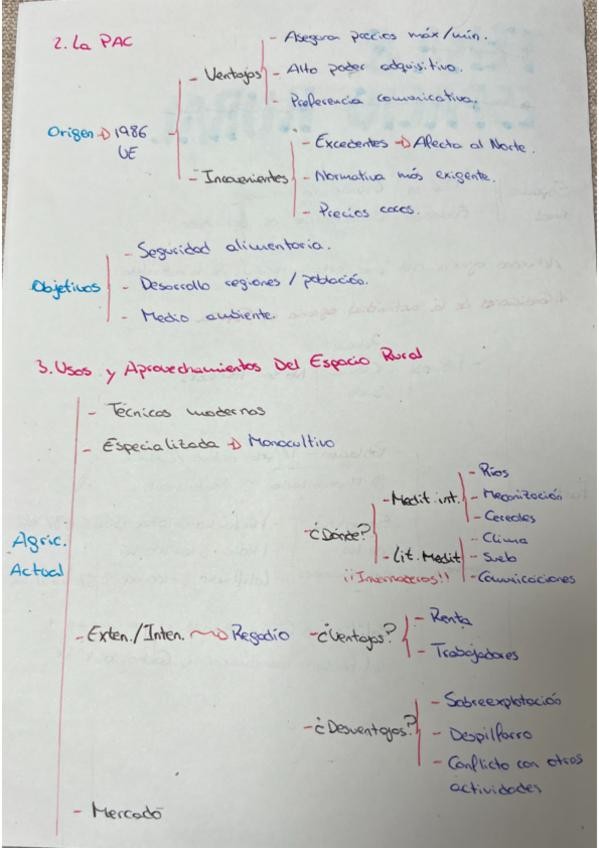 2. La PAC
- Aseguran precios máx/min.
- Ventajas
- Alto poder adquisitivo.
- Preferencia comunicativa.
Origen → 1986
UE
- Excedentes → Afecta al Norte.
- Inconvenientes
- Normativa más exigente.
- Precios caros.
- Seguridad alimentaria.
Objetivos
- Desarrollo regiones / población.
- Medio ambiente.
3. Usos y Aprovechamientos Del Espacio Rural
- Técnicas modernas
- Especializada → Monocultivo
- Ríos
- Medit int.
- Mecanización
- Cereales
- ¿Dónde?
- Clima
- Lit. Medit
- Suelo
¡¡Invernaderos!!
- Comunicaciones
Agric.
Actual
- Exten./Inten. → Regadío
- ¿Ventajas?
- Renta
- Trabajadores
- Sobreexplotación
- ¿Desventajas?
- Despilfarro
- Conflicto con otras
actividades
- Mercado